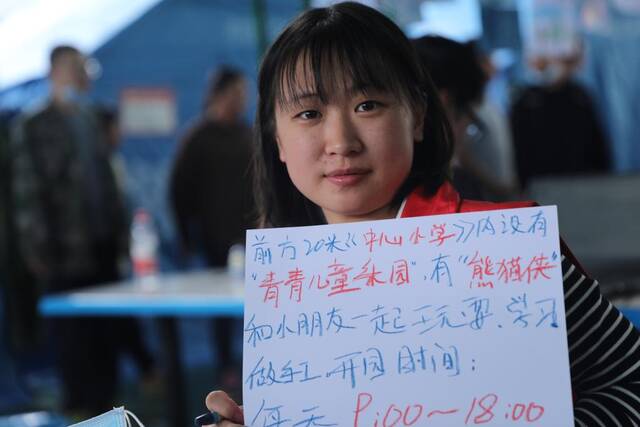 前方20米《中心小学》内设有
"青青儿童乐园",有"熊猫侠"
和小朋友一起玩耍、学习
做手工,开园时间:
每天 9:00～18:00